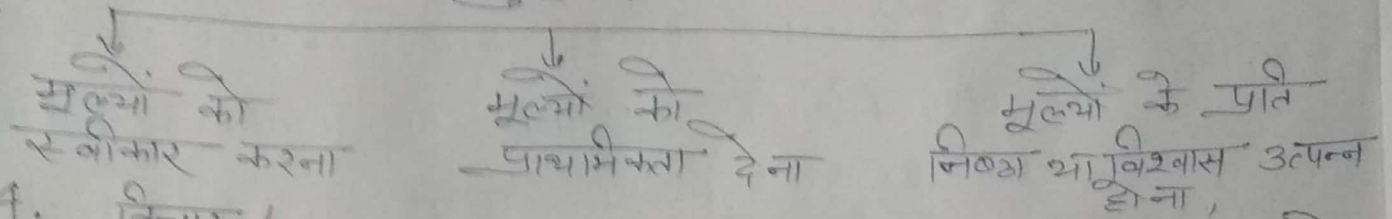 मूल्यों को
स्वीकार करना
मूल्यों को
प्राथमिकता देना
मूल्यों के प्रति
निष्ठा या विश्वास उत्पन्न
होना,
4.